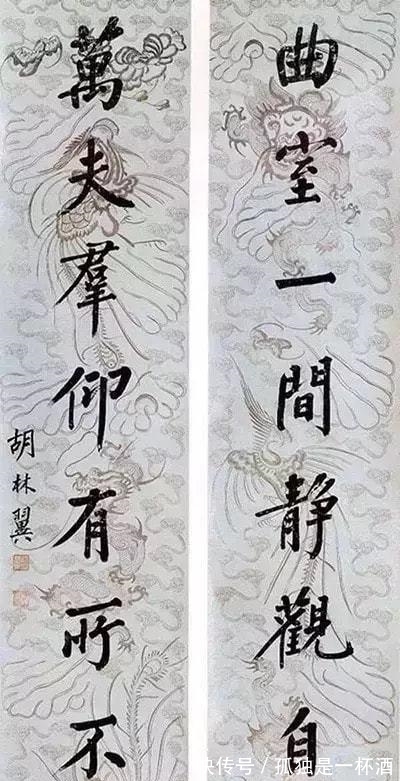 曲室一間静觀自
萬夫羣仰有所不
胡林翼
快传号/孤独是一杯酒